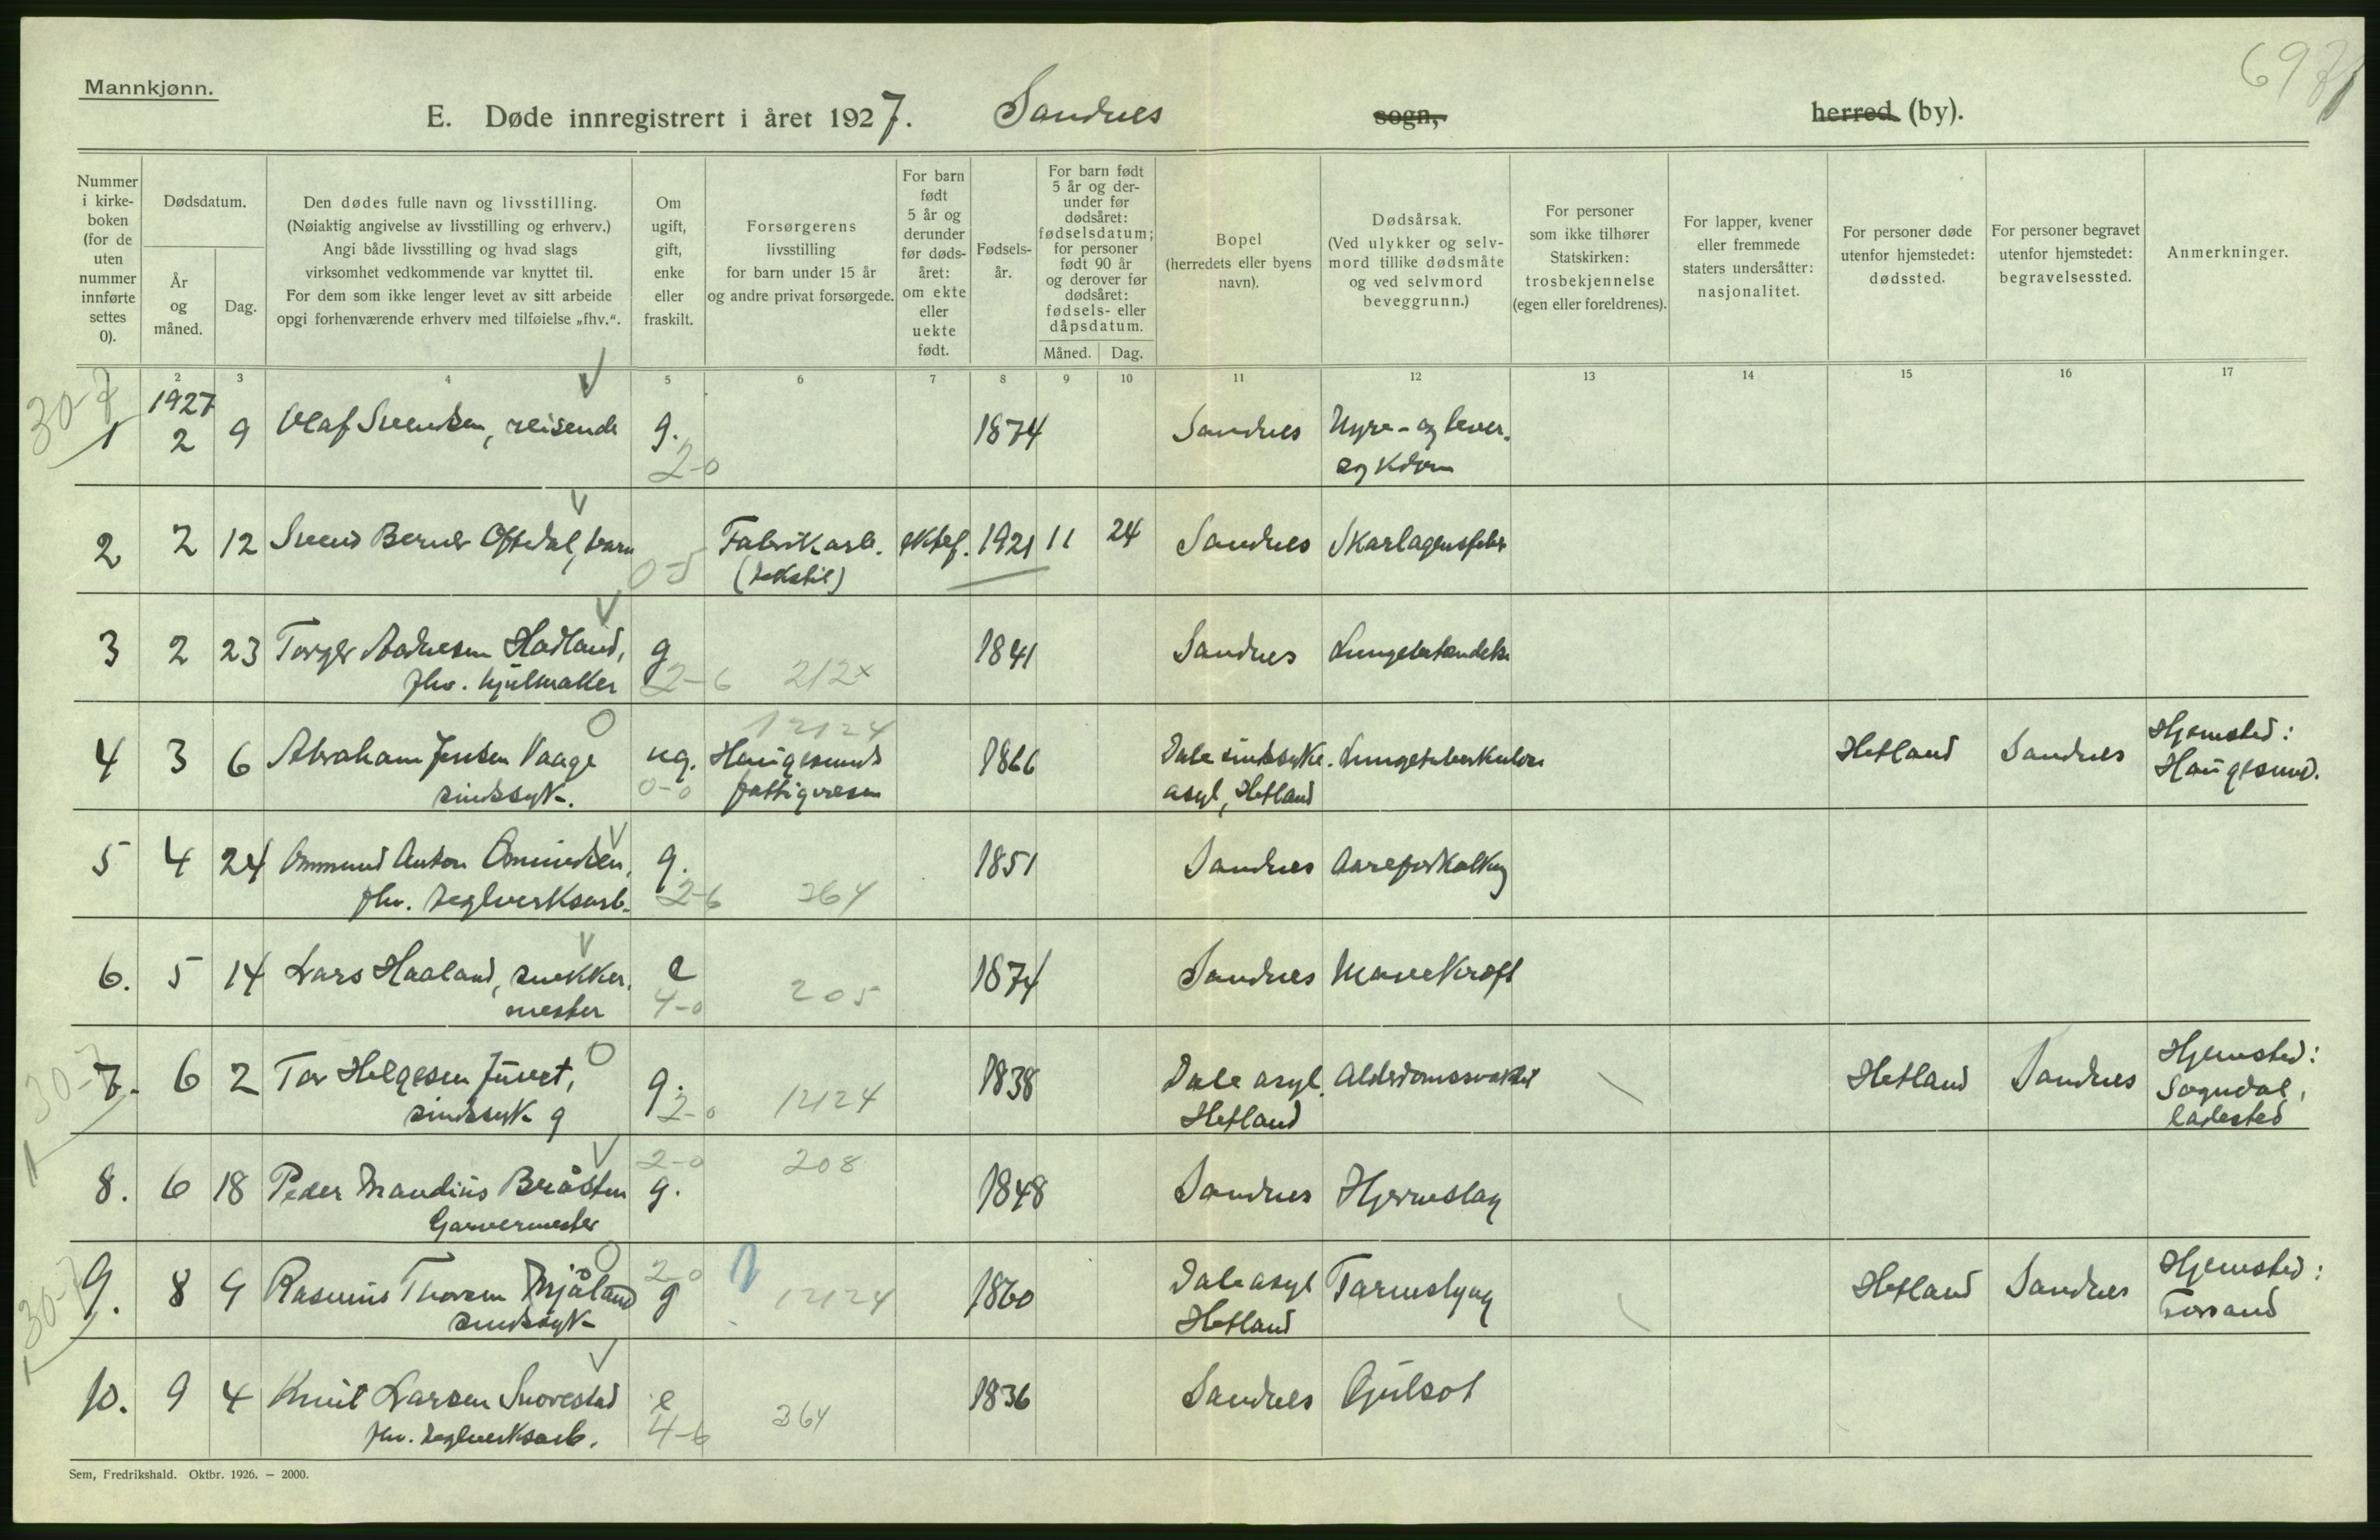 Mannkjønn.
E. Døde innregistrert i året 1927. Sandnes sogn, herred (by).
Nummer i kirkeboken (for de uten nummer innførte settes 0).
Dødsdatum.
År og måned.
Dag.
Den dødes fulle navn og livsstilling.
(Nøiaktig angivelse av livsstilling og erhverv.)
Angi både livsstilling og hvad slags
virksomhet vedkommende var knyttet til.
For dem som ikke lenger levet av sitt arbeide
opgi forhenværende erhverv med tilføielse „fhv.“.
Om ugift, gift, enke eller fraskilt.
Forsørgerens
livsstilling
for barn under 15 år
og andre privat forsørgede.
For barn født 5 år og derunder før dødsåret: om ekte eller uekte født.
Fødselsår.
For barn født 5 år og derunder før dødsåret: fødselsdatum; for personer født 90 år og derover før dødsåret: fødsels- eller dåpsdatum.
Måned.
Dag.
Bopel
(herredets eller byens
navn).
Dødsårsak.
(Ved ulykker og selvmord tillike dødsmåte
og ved selvmord
beveggrunn.)
For personer
som ikke tilhører
Statskirken:
trosbekjennelse
(egen eller foreldrenes).
For lapper, kvener
eller fremmede
staters undersåtter:
nasjonalitet.
For personer døde
utenfor hjemstedet:
dødssted.
For personer begravet
utenfor hjemstedet:
begravelsessted.
Anmerkninger.
2 3 4 5 6 7 8 9 10 11 12 13 14 15 16 17
30-7
1927
1 2 9 Olaf Svendsen, reisende g. 1874 Sandnes Nyre- og lever-
2-0 sykdom
2 2 12 Svend Berner Oftedal, barn Fabrikarb. ektef. 1921 11 24 Sandnes Skarlagensfeber
0-5 (tekstil)
3 2 23 Torger Aadnesen Hadland, g 1841 Sandnes Lungebetændelse
fhv. hjulmaker 2-6 212x
12124
4 3 6 Abraham Jensen Vaage ug. Haugesunds 1866 Dale sindssyke- Lungetuberkulose Hetland Sandnes Hjemsted:
sindssyk. 0-0 fattigvesen asyl, Hetland Haugesund.
5 4 24 Ommund Anton Omundsen, g. 1851 Sandnes Aareforkalkng
fhv. teglverksarb. 2-6 364
6. 5 14 Lars Haaland, snekker- e 1874 Sandnes Mavekræft
mester 4-0 205
30-7
7. 6 2 Tor Helgesen Juvet, g. 1838 Dale asyl. Alderdomssvakhet Hetland Sandnes Hjemsted:
sindssyk g 2-0 12124 Hetland Sogndal,
ladested
2-0 208
8. 6 18 Peder Mandius Bråsten g. 1848 Sandnes Hjerneslag
Garvermester
30-7
9. 8 9 Rasmus Thorsen Mjåland 2-0 g 12124 1860 Dale asyl Tarmslyng Hetland Sandnes Hjemsted:
sindssyk Hetland Forsand
10. 9 4 Knut Larsen Snorestad e 1836 Sandnes Gulsot
fhv. teglverksarb. 4-6 364
Sem, Fredrikshald. Oktbr. 1926. — 2000.